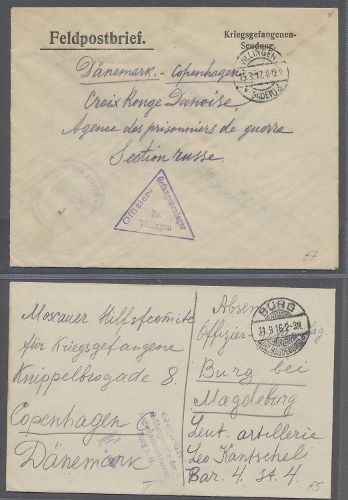 Feldpostbrief.
Kriegsgefangenen-
Sendung.
VILLINGEN
13.3.17.
(BADEN)
Dänemark. - Copenhagen
Croix Rouge Danoise,
Agence des prisonniers de guerre
Section russe
Offizier-
Gefangenenlager
Villingen
57
Moscauer Hilfscomite
für Kriegsgefangene
Knippelbrogade 8.
Copenhagen
Dänemark
BURG
Absen
Offizier
Burg bei
Magdeburg
Leut. artillerie
Leo Kantschel
Bar. 4. St. 4.